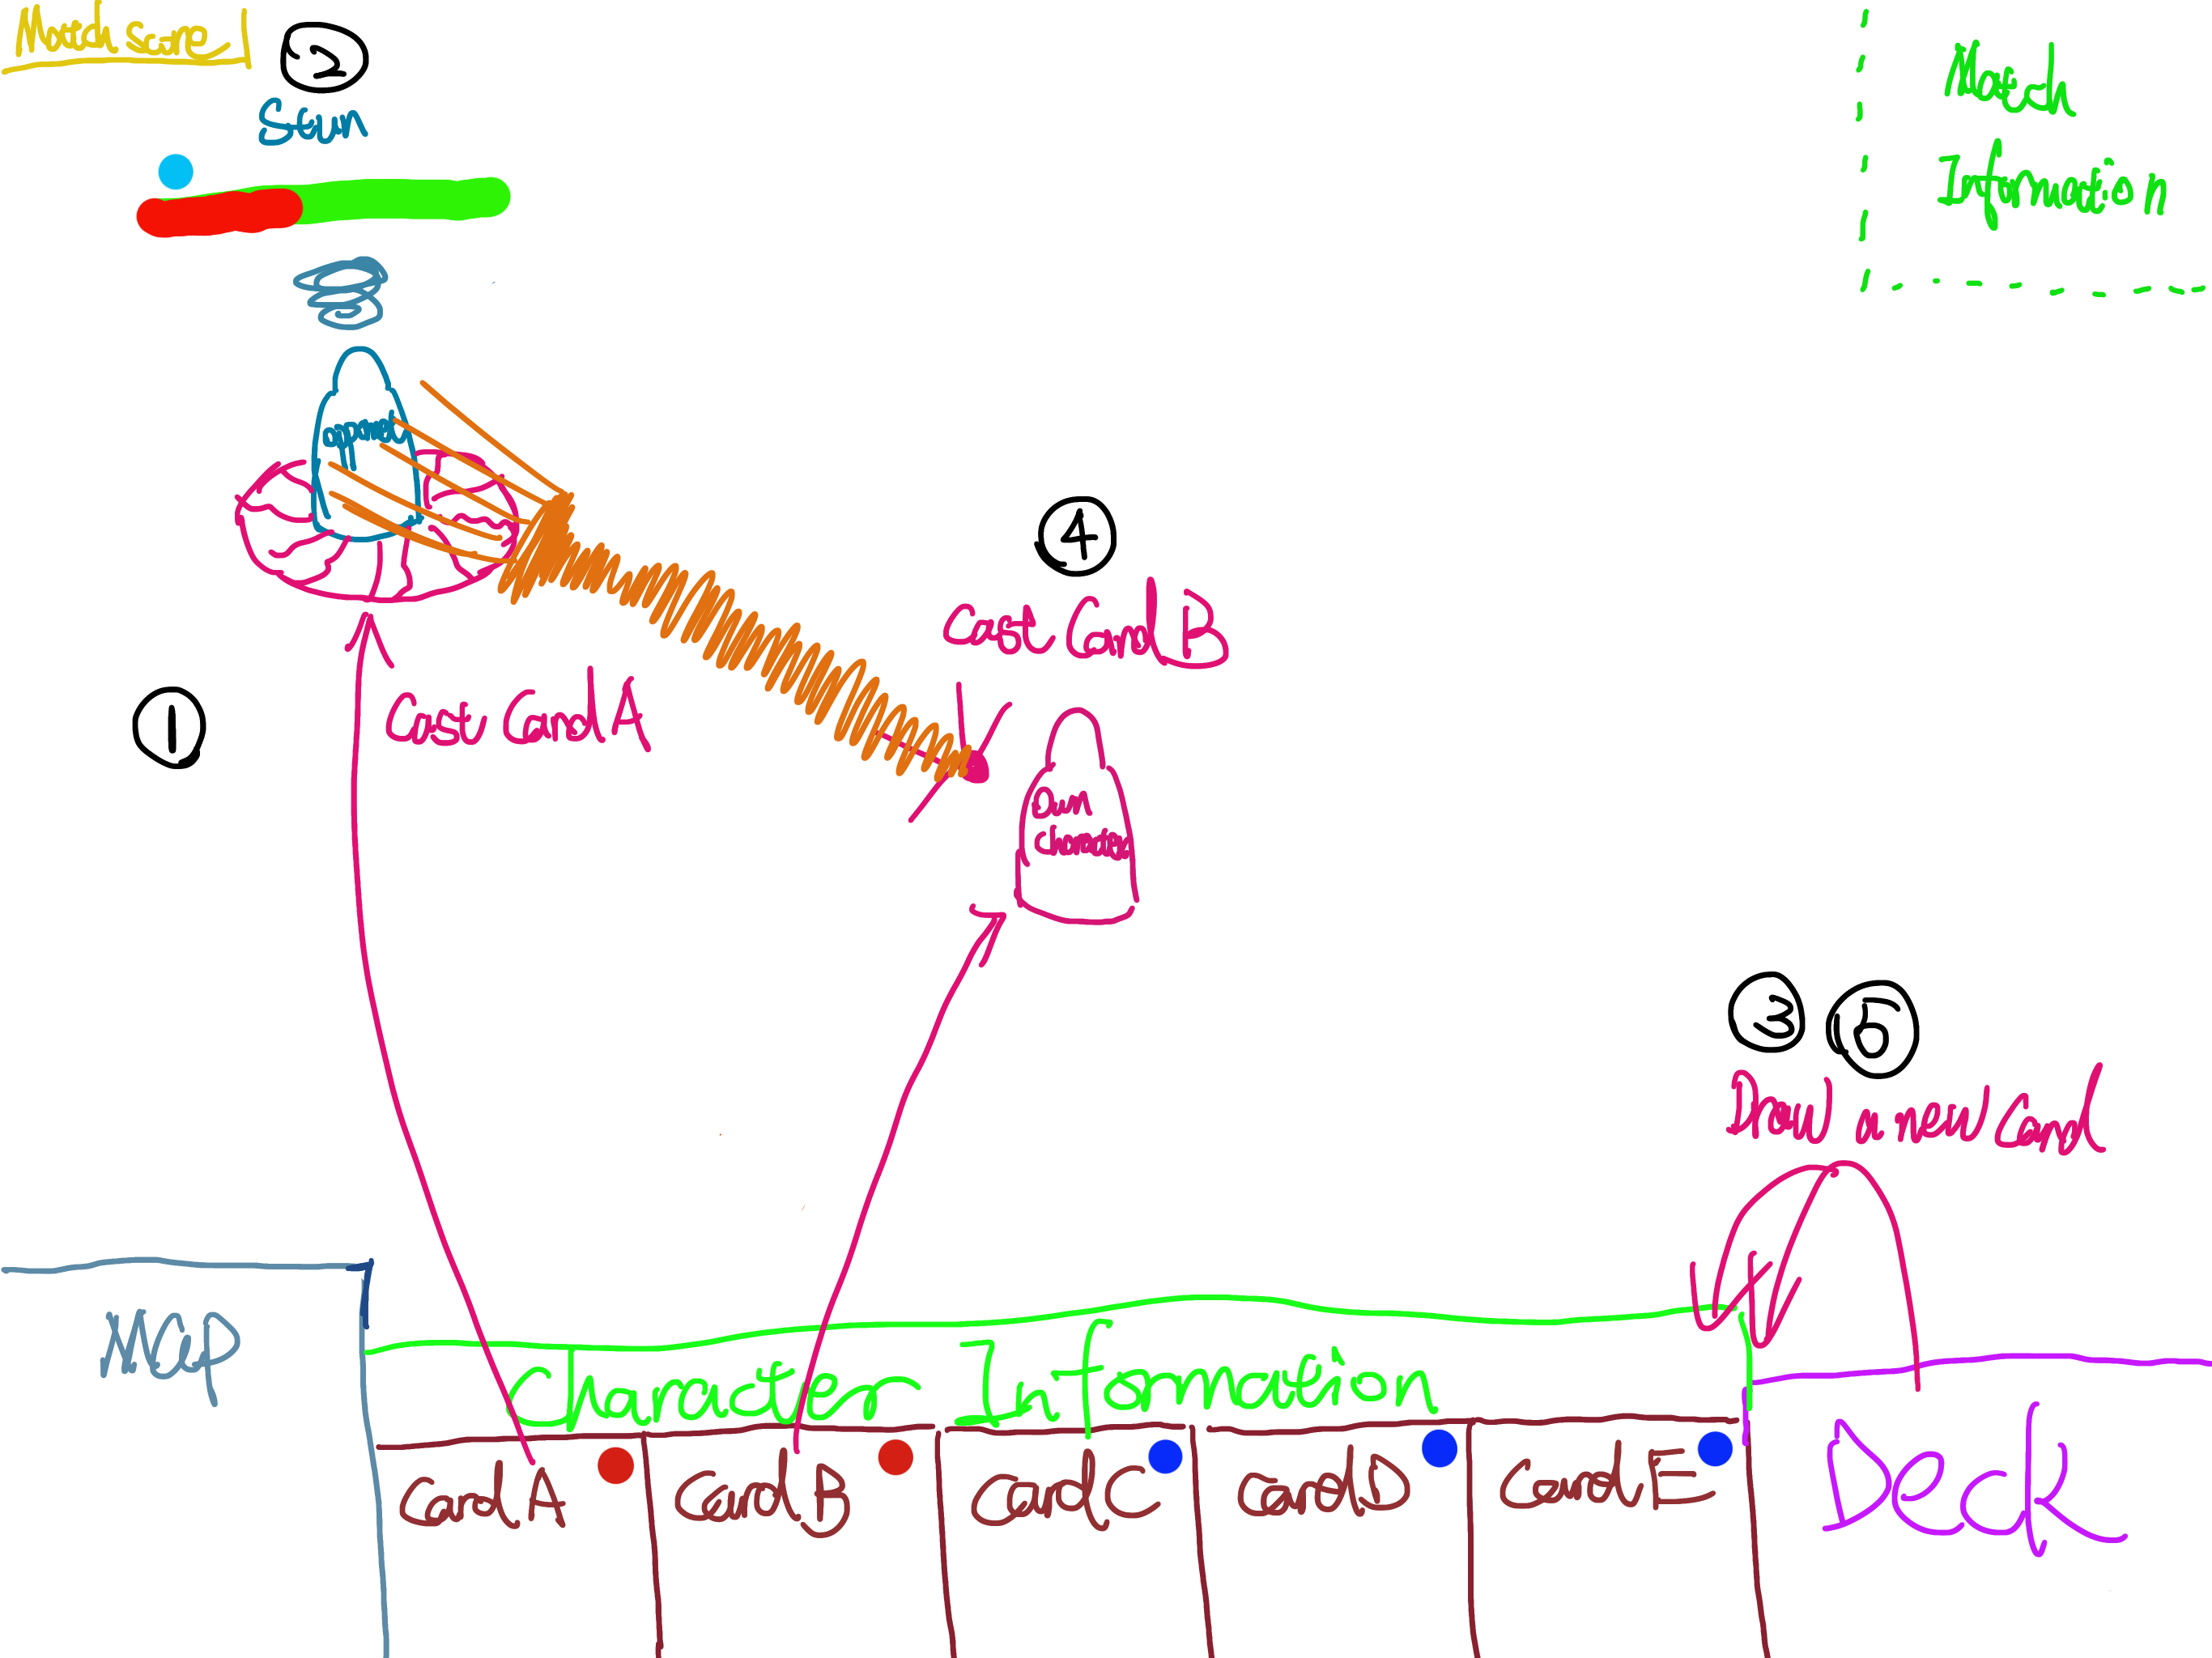 ②
Stun
Match
Information
opponent
④
Cast Card B
①
Cast Card A
Own
character
③ ⑤
Draw a new Card
MAP
Character Information
Card A
Card B
Card C
Card D
Card E
Deck